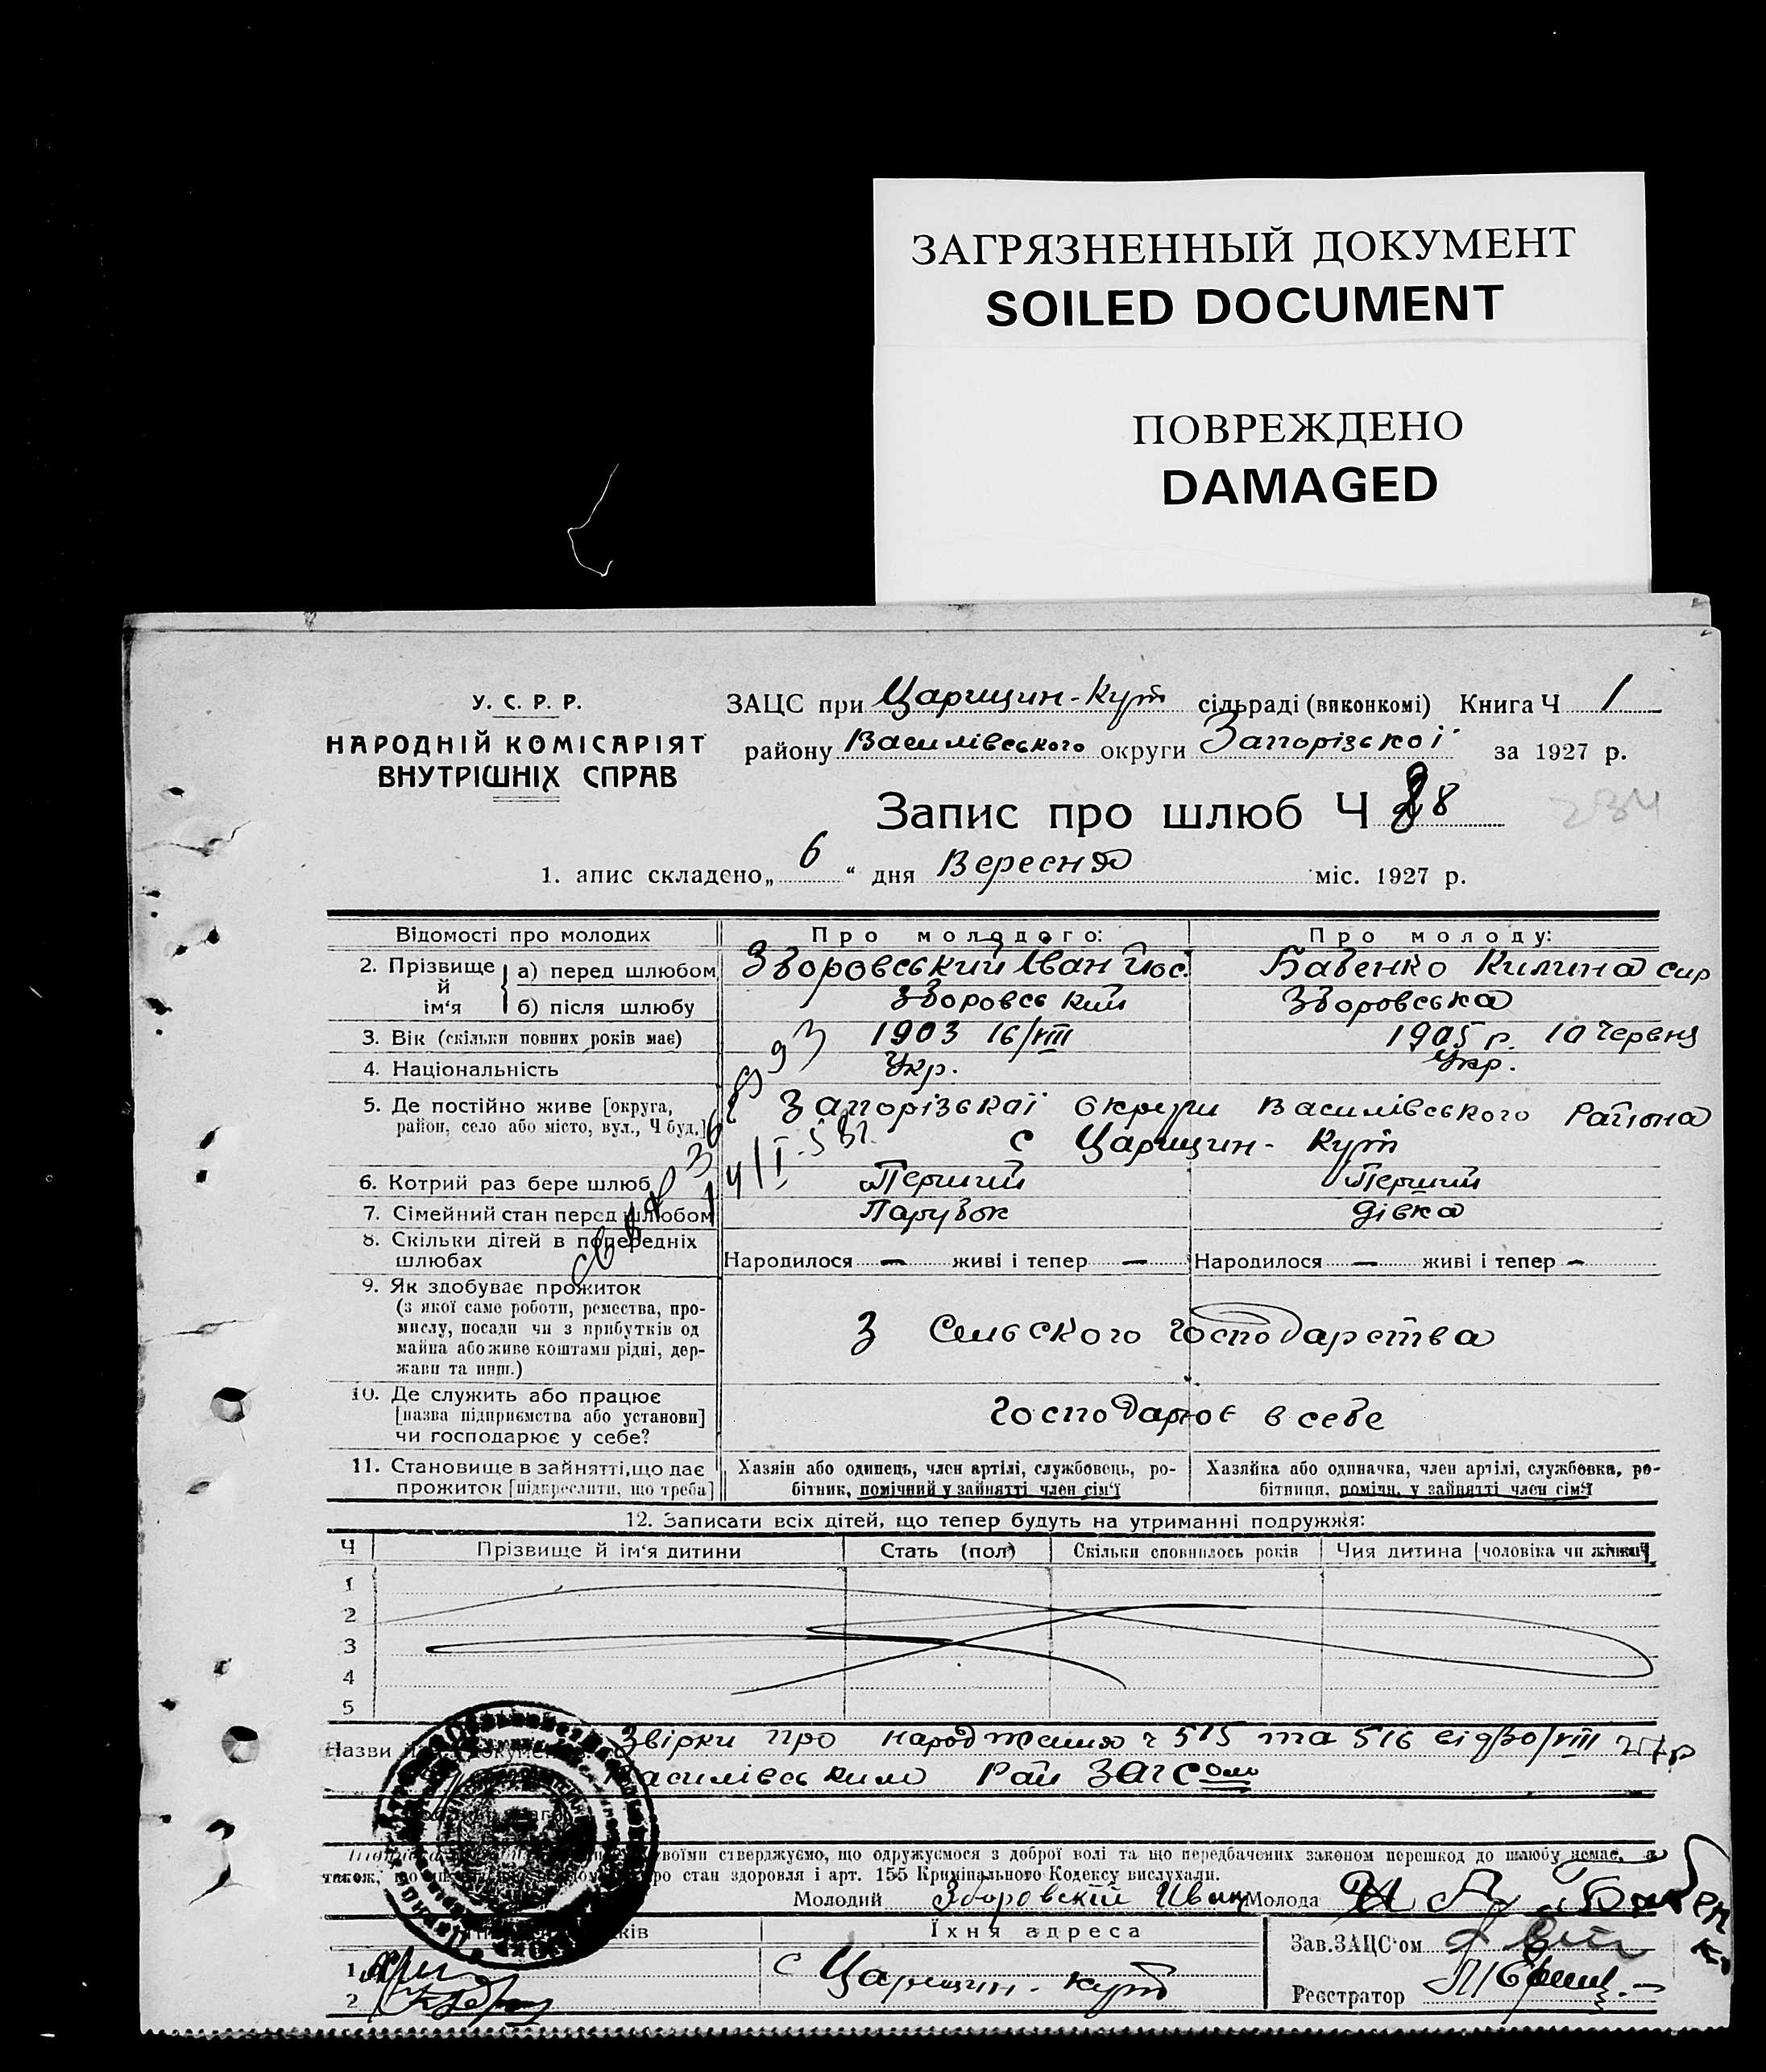 ЗАГРЯЗНЕННЫЙ ДОКУМЕНТ
SOILED DOCUMENT
ПОВРЕЖДЕНО
DAMAGED
У. С. Р. Р.
НАРОДНІЙ КОМІСАРІЯТ
ВНУТРІШНІХ СПРАВ
ЗАЦС при Царицин-Кут сільраді (виконкомі) Книга Ч 1
району Василівського округи Запорізької за 1927 р.
Запис про шлюб Ч 28
234
1. апис складено „ 6 “ дня Вересня міс. 1927 р.
Відомості про молодих Про молодого: Про молоду:
2. Прізвище й ім'я а) перед шлюбом Зборовський Іван Йос. Бабенко Килина Сид
б) після шлюбу Зборовський Зборовська
3. Вік (скільки повних років має) 1903 16/VIII 1905 р. 10 червня
4. Національність Укр. Укр.
5. Де постійно живе [округа, район, село або місто, вул., Ч буд.] Запорізскої округи Василівського Района
с Царицин-Кут
6. Котрий раз бере шлюб Перший Перший
7. Сімейний стан перед шлюбом Парубок дівка
8. Скільки дітей в попередніх шлюбах Народилося — живі і тепер — Народилося — живі і тепер —
9. Як здобуває прожиток
(з якої саме роботи, ремества, про-
мислу, посади чи з прибутків од
майна або живе коштами рідні, дер-
жави та инш.)
З Сельского господарства
10. Де служить або працює
[назва підприємства або установи]
чи господарює у себе?
Господарює в себе
11. Становище в зайнятті, що дає
прожиток [підкреслити, що треба]
Хазяїн або одинець, член артілі, службовець, ро-
бітник, помічний у зайнятті член сім'ї
Хазяйка або одиначка, член артілі, службовка, ро-
бітниця, помічн. у зайнятті член сім'ї
12. Записати всіх дітей, що тепер будуть на утриманні подружжя:
Ч Прізвище й ім'я дитини Стать (пол) Скільки сповнилось років Чия дитина [чоловіка чи жінки]
1
2
3
4
5
Назви Звірки про народження ч 515 та 516 від 30/VIII 27 р
Василівським Рай ЗАГСом
своїми стверджуємо, що одружуємося з доброї волі та що передбачених законом перешкод до шлюбу немає, а
також, про стан здоровля і арт. 155 Кримінального Кодексу вислухали.
Молодий Зборовскій Иван Молода Бабенко
Їхня адреса
Зав. ЗАЦС'ом
1
2
с Царицин-Кут
Реєстратор